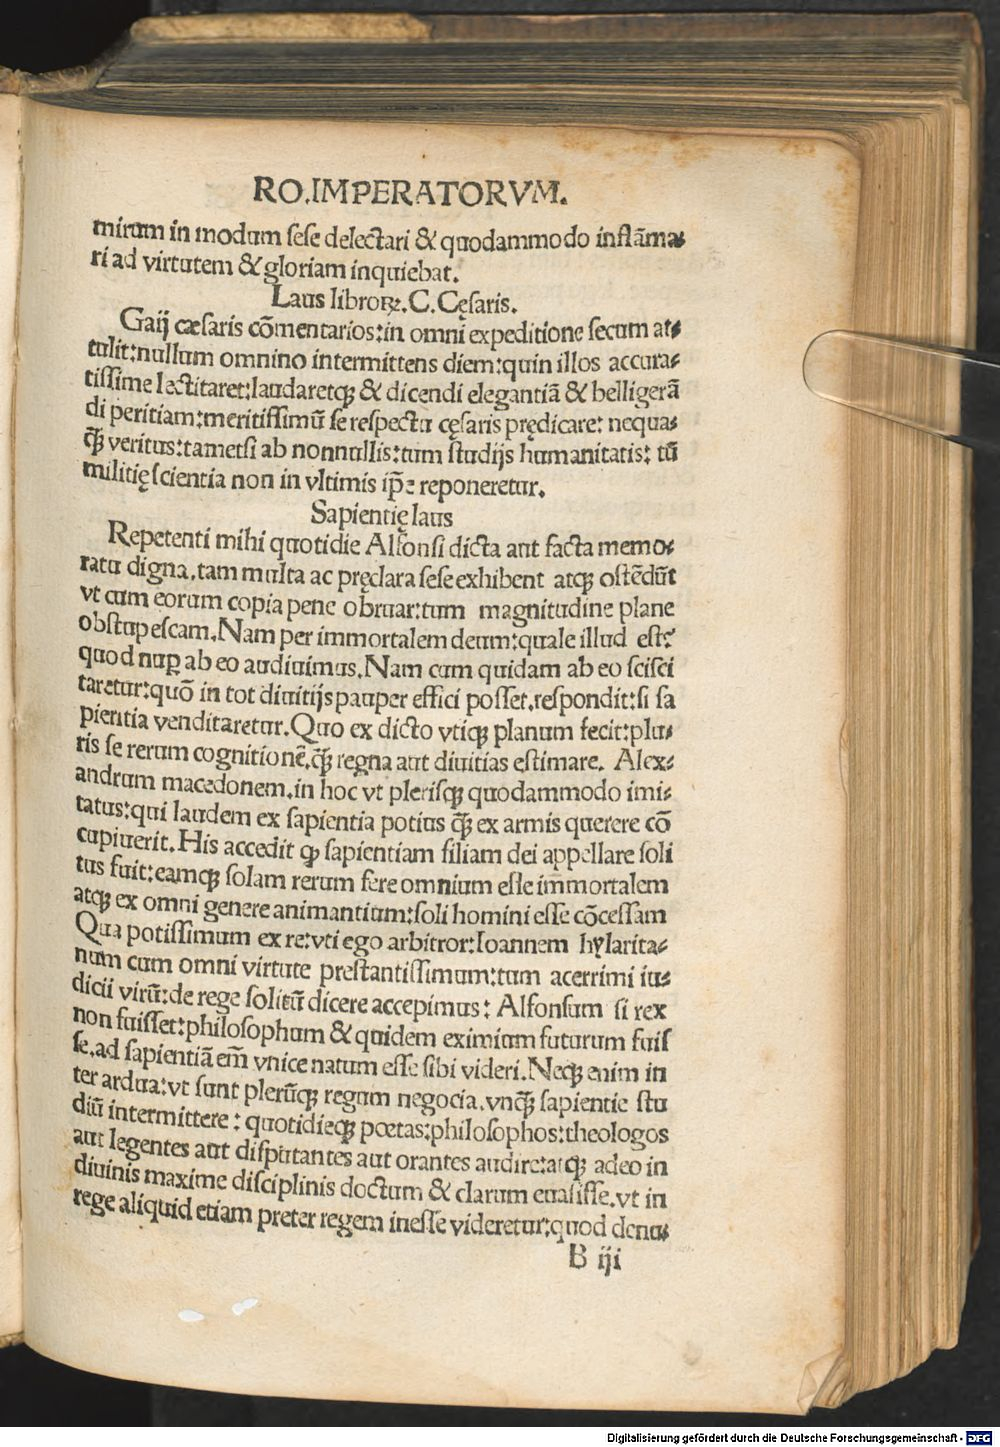 RO.IMPERATORVM.
mirum in modum ſeſe delectari & quodammodo inflāma⸗
ri ad virtutem & gloriam inquiebat.
Laus libroꝝ.C.Cęſaris.
Gaij cæſaris cōmentarios:in omni expeditione ſecum at⸗
tulit:nullum omnino intermittens diem:quin illos accura⸗
tiſſime lectitaret:laudaretqꝫ & dicendi elegantiā & belligerā
di peritiam:meritiſſimū ſe reſpectu cęſaris prędicare: nequa⸗
ꝙ̄ veritus:tametſi ab nonnullis:tum ſtudijs humanitatis: tū
militię ſcientia non in vltimis ip̄e reponeretur.
Sapientię laus
Repetenti mihi quotidie Alfonſi dicta aut facta memo⸗
ratu digna.tam multa ac pręclara ſeſe exhibent atqꝫ oſtēdūt
vt cum eorum copia pene obruar:tum magnitudine plane
obſtupeſcam.Nam per immortalem deum:quale illud eſt?
quod nuꝑ ab eo audiuimus.Nam cum quidam ab eo ſciſci
taretur:quō in tot diuitijs pauper effici poſſet.reſpondit:ſi ſa
pientia venditaretur.Quo ex dicto vtiqꝫ planum fecit:plu⸗
ris ſe rerum cognitionē.ꝙ̄ regna aut diuitias eſtimare. Alex⸗
andrum macedonem.in hoc vt pleriſqꝫ quodammodo imi⸗
tatus:qui laudem ex ſapientia potius ꝙ̄ ex armis querere cō
cupiuerit.His accedit ꝙ ſapientiam filiam dei appellare ſoli
tus fuit:eamqꝫ ſolam rerum fere omnium eſſe immortalem
atqꝫ ex omni genere animantium:ſoli homini eſſe cōceſſam
Qua potiſſimum ex re:vti ego arbitror:Ioannem hylarita⸗
num cum omni virtute preſtantiſſimum:tum acerrimi iu⸗
dicii virū:de rege ſolitū dicere accepimus: Alfonſum ſi rex
non fuiſſet:philoſophum & quidem eximium futurum fuiſ
ſe.ad ſapientiā em̄ vnice natum eſſe ſibi videri.Neqꝫ enim in
ter ardua:vt ſunt plerūqꝫ regum negocia.vnꝙ̄ ſapientie ſtu
diū intermittere: quotidieqꝫ poetas:philoſophos:theologos
aut legentes aut diſputantes aut orantes audire:atqꝫ adeo in
diuinis maxime diſciplinis doctum & clarum euaſiſſe.vt in
rege aliquid etiam preter regem ineſſe videretur:quod denu⸗
B iij
Digitalisierung gefördert durch die Deutsche Forschungsgemeinschaft - DFG